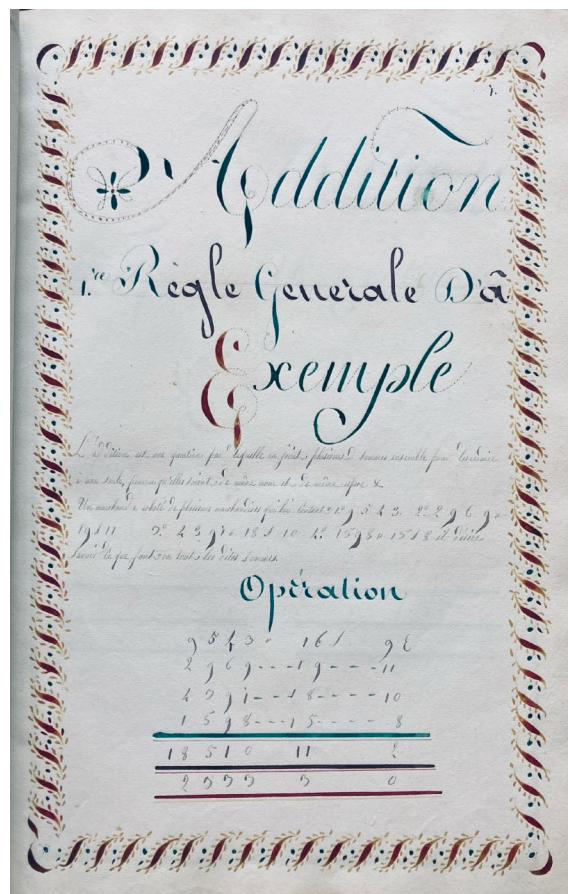 Addition
1.re Règle Generale D'ã
Exemple
L'addition est une opération par laquelle on joint plusieurs sommes ensemble pour les réduire
à une seule, pourvu qu'elles soient de même nom et de même espece &
Un marchand a acheté de plusieurs marchandises qui lui 1° 9543. 2° 2969
19 s 11 3° 4397 18 s 10 4° 1598 15 s 8 il désire
savoir ce que font en tout les dites sommes.
Opération
9543 16 s 9 d
2969 - - - 19 - - - - 11
4397 - - - 18 - - - - 10
1598 - - - 15 - - - - 8
18510 11 2
2333 3 0